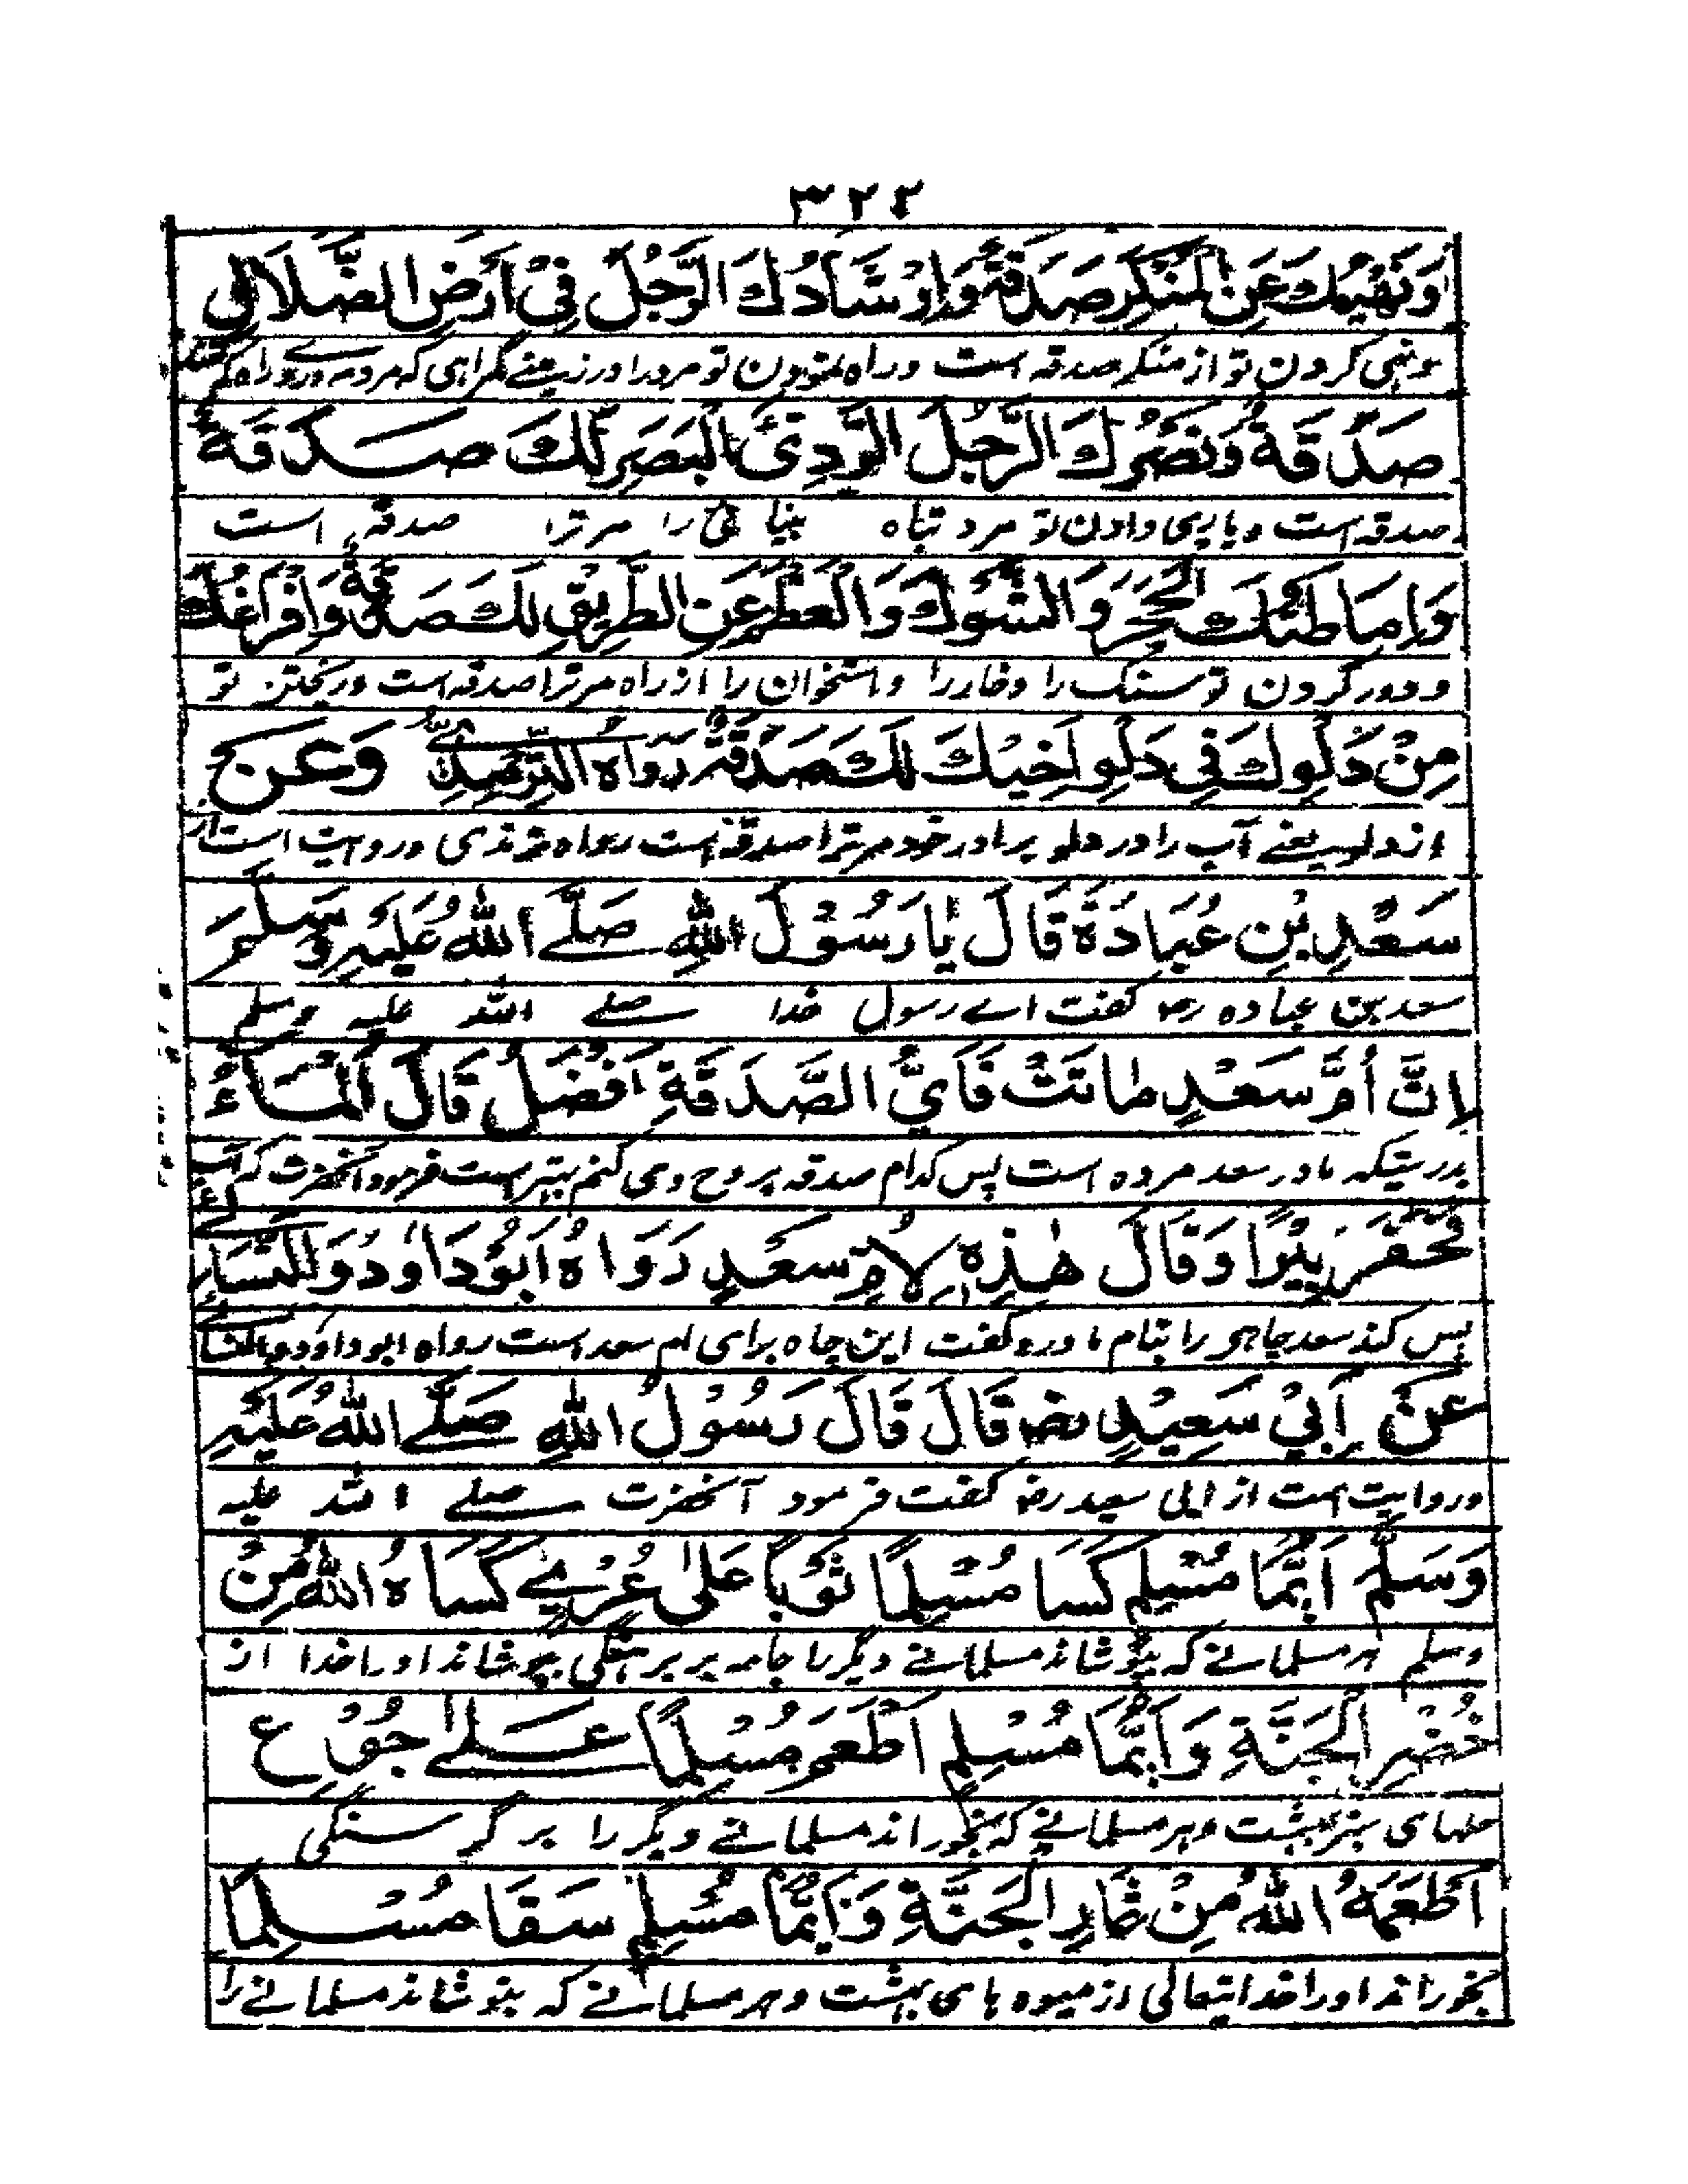 ٣٢٢
وَنَهْيُكَ عَنِ الْمُنْكَرِ صَدَقَةٌ وَاِرْشَادُكَ الرَّجُلَ فِيْ اَرْضِ الضَّلَالِ
ونہی کردن تو از منکر صدقہ است وراہ نمودن تو مرد را در زمینے گمراہی کہ مردمے درو راہ گم کنند
صَدَقَةٌ وَنَصْرُكَ الرَّجُلَ الرَّدِئَ الْبَصَرِ لَكَ صَدَقَةٌ
صدقہ است ویاری دادن تو مرد تباہ بینائی را مر ترا صدقہ است
وَاِمَاطَتُكَ الْحَجَرَ وَالشَّوْكَ وَالْعَظْمَ عَنِ الطَّرِيْقِ لَكَ صَدَقَةٌ وَاِفْرَاغُكَ
ودور کردن تو سنگ را وخار را واستخوان را از راہ مر ترا صدقہ است وریختن تو
مِنْ دَلْوِكَ فِيْ دَلْوِ اَخِيْكَ لَكَ صَدَقَةٌ رَوَاهُ التِّرْمِذِيُّ وَعَنْ
از دلو یعنے آب را در دلو برادر خود مر ترا صدقہ است رواہ ترمذی وروایت است از
سَعْدِ بْنِ عُبَادَةَ قَالَ يَا رَسُوْلَ اللهِ صَلَّے اللهُ عَلَيْهِ وَسَلَّمَ
سعد بن عبادہ رض گفت اے رسول خدا صلے اللہ علیہ وسلم
اِنَّ اُمَّ سَعْدٍ مَاتَتْ فَاَيُّ الصَّدَقَةِ اَفْضَلُ قَالَ الْمَاءُ
بدرستیکہ مادر سعد مردہ است پس کدام صدقہ بر روح وی کنم بہتر است فرمود آنحضرت کہ آب
فَحَفَرَ بِئْرًا وَقَالَ هٰذِهِ لِاُمِّ سَعْدٍ رَوَاهُ اَبُوْدَاوٗدَ وَالنَّسَائِے
پس کند سعد چاہی را بنام مادر وگفت این چاہ برای ام سعد است رواہ ابوداؤد والنسائے
عَنْ اَبِيْ سَعِيْدٍ رض قَالَ قَالَ رَسُوْلُ اللهِ صَلَّے اللهُ عَلَيْهِ
وروایت است از ابی سعید رض گفت فرمود آنحضرت صلے اللہ علیہ
وَسَلَّمَ اَيُّمَا مُسْلِمٍ كَسَا مُسْلِمًا ثَوْبًا عَلٰى عُرْيٍ كَسَاهُ اللهُ مِنْ
وسلم ہر مسلمانے کہ بپوشاند مسلمانے دیگر را جامہ بر برہنگی بپوشاند او را خدا از
خُضْرِ الْجَنَّةِ وَاَيُّمَا مُسْلِمٍ اَطْعَمَ مُسْلِمًا عَلٰے جُوْعٍ
حلہای سبز بہشت وہر مسلمانے کہ بخوراند مسلمانے دیگر را بر گرسنگی
اَطْعَمَهُ اللهُ مِنْ ثِمَارِ الْجَنَّةِ وَاَيُّمَا مُسْلِمٍ سَقَا مُسْلِمًا
بخوراند او را خدایتعالی از میوہ ہای بہشت وہر مسلمانے کہ بنوشاند مسلمانے را